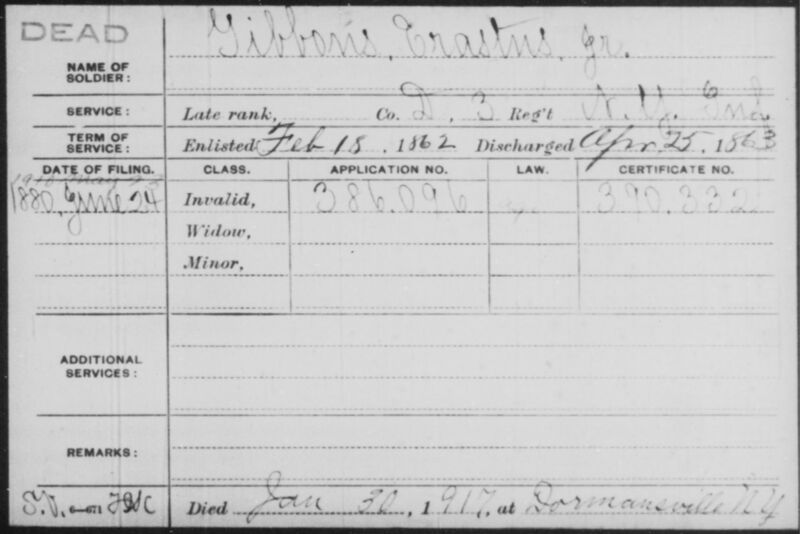 DEAD
Gibbons, Erastus, Jr.
NAME OF
SOLDIER:
SERVICE: Late rank, Co. D, 3 Reg't N.Y. Inf
TERM OF
SERVICE: Enlisted Feb 18, 1862 Discharged Apr 25, 1863
DATE OF FILING. CLASS. APPLICATION NO. LAW. CERTIFICATE NO.
1880, June 24 Invalid, 386.096 390.332
Widow,
Minor,
ADDITIONAL
SERVICES:
REMARKS:
Died Jan 30, 1917, at Dormansville NY